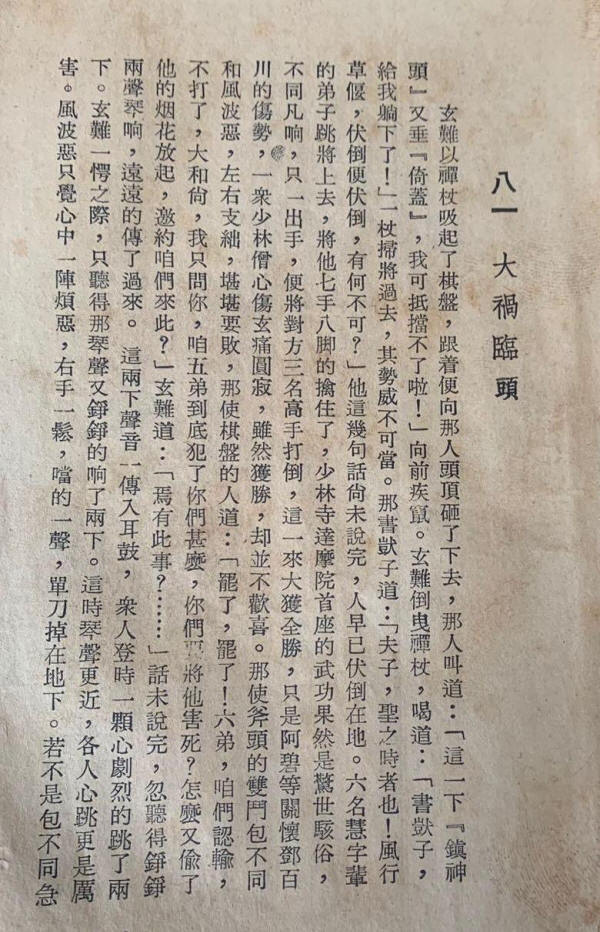 八一　大禍臨頭
玄難以禪杖吸起了棋盤，跟着便向那人頭頂砸了下去，那人叫道：「這一下『鎮神
頭』又垂『倚蓋』，我可抵擋不了啦！」向前疾竄。玄難倒曳禪杖，喝道：「書獃子，
給我躺下了！」一杖掃將過去，其勢威不可當。那書獃子道：「夫子，聖之時者也！風行
草偃，伏倒便伏倒，有何不可？」他這幾句話尙未說完，人早已伏倒在地。六名慧字輩
的弟子跳將上去，將他七手八脚的擒住了，少林寺達摩院首座的武功果然是驚世駭俗，
不同凡响，只一出手，便將對方三名高手打倒，這一來大獲全勝，只是阿碧等關懷鄧百
川的傷勢，一衆少林僧心傷玄痛圓寂，雖然獲勝，却並不歡喜。那使斧頭的雙鬥包不同
和風波惡，左右支絀，堪堪要敗，那使棋盤的人道：「罷了，罷了！六弟，咱們認輸，
不打了，大和尙，我只問你，咱五弟到底犯了你們甚麼，你們將他害死？怎麼又偷了
他的烟花放起，邀約咱們來此？」玄難道：「焉有此事？……」話未說完，忽聽得錚錚
兩聲琴响，遠遠的傳了過來。這兩下聲音一傳入耳鼓，衆人登時一顆心劇烈的跳了兩
下。玄難一愕之際，只聽得那琴聲又錚錚的响了兩下。這時琴聲更近，各人心跳更是厲
害。風波惡只覺心中一陣煩惡，右手一鬆，噹的一聲，單刀掉在地下。若不是包不同急